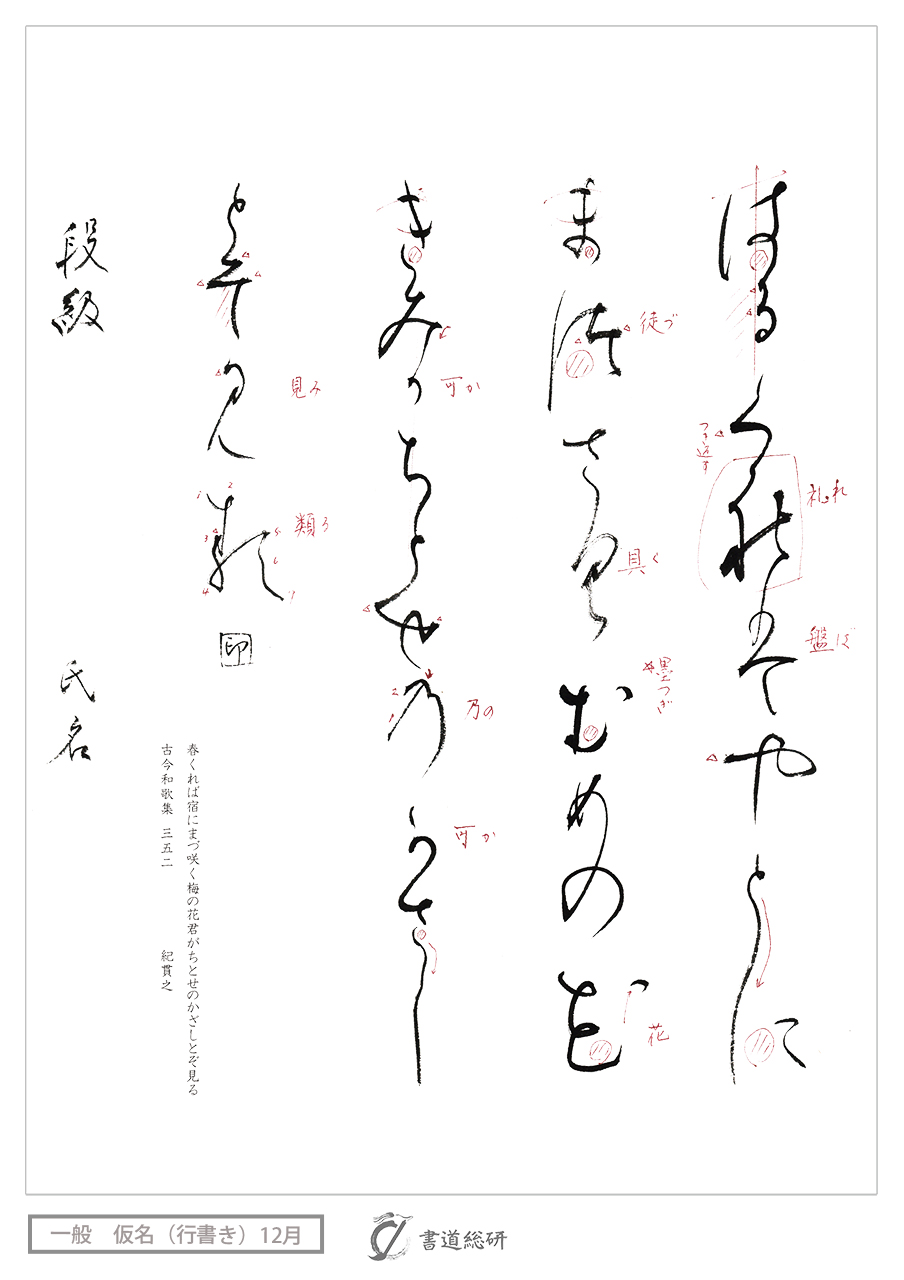 はるくれ盤やとに
ま徒さ具むめの花
きみ可ちとせ乃可さし
とそ見類
印
段級
氏名
礼れ
つき返す
盤ば
徒づ
具く
墨つぎ
花
可か
乃の
可か
見み
類る
春くれば宿にまづ咲く梅の花君がちとせのかざしとぞ見る
古今和歌集 三五二 紀貫之
一般 仮名（行書き）12月
書道総研